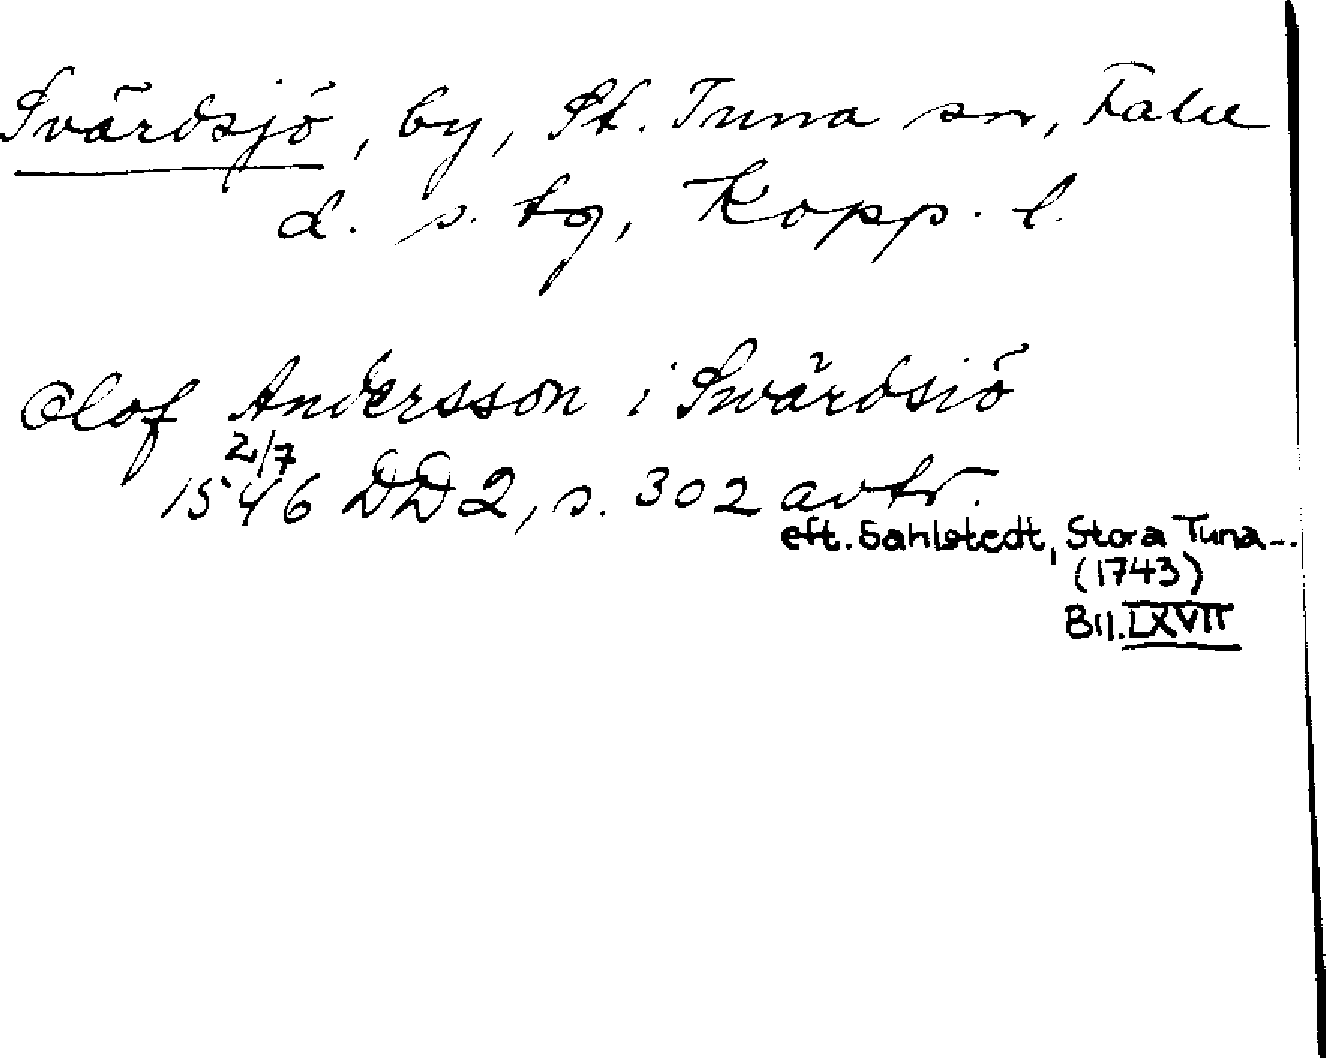 Svärdsjö, by, St. Tuna sn, Falu
d. s. tg, Kopp. l.
Olof Andersson i Swärdsiö
2/7
1546 DD 2, s. 302 avtr.
eft. Sahlstedt, Stora Tuna...
(1743)
Bil. LXVII